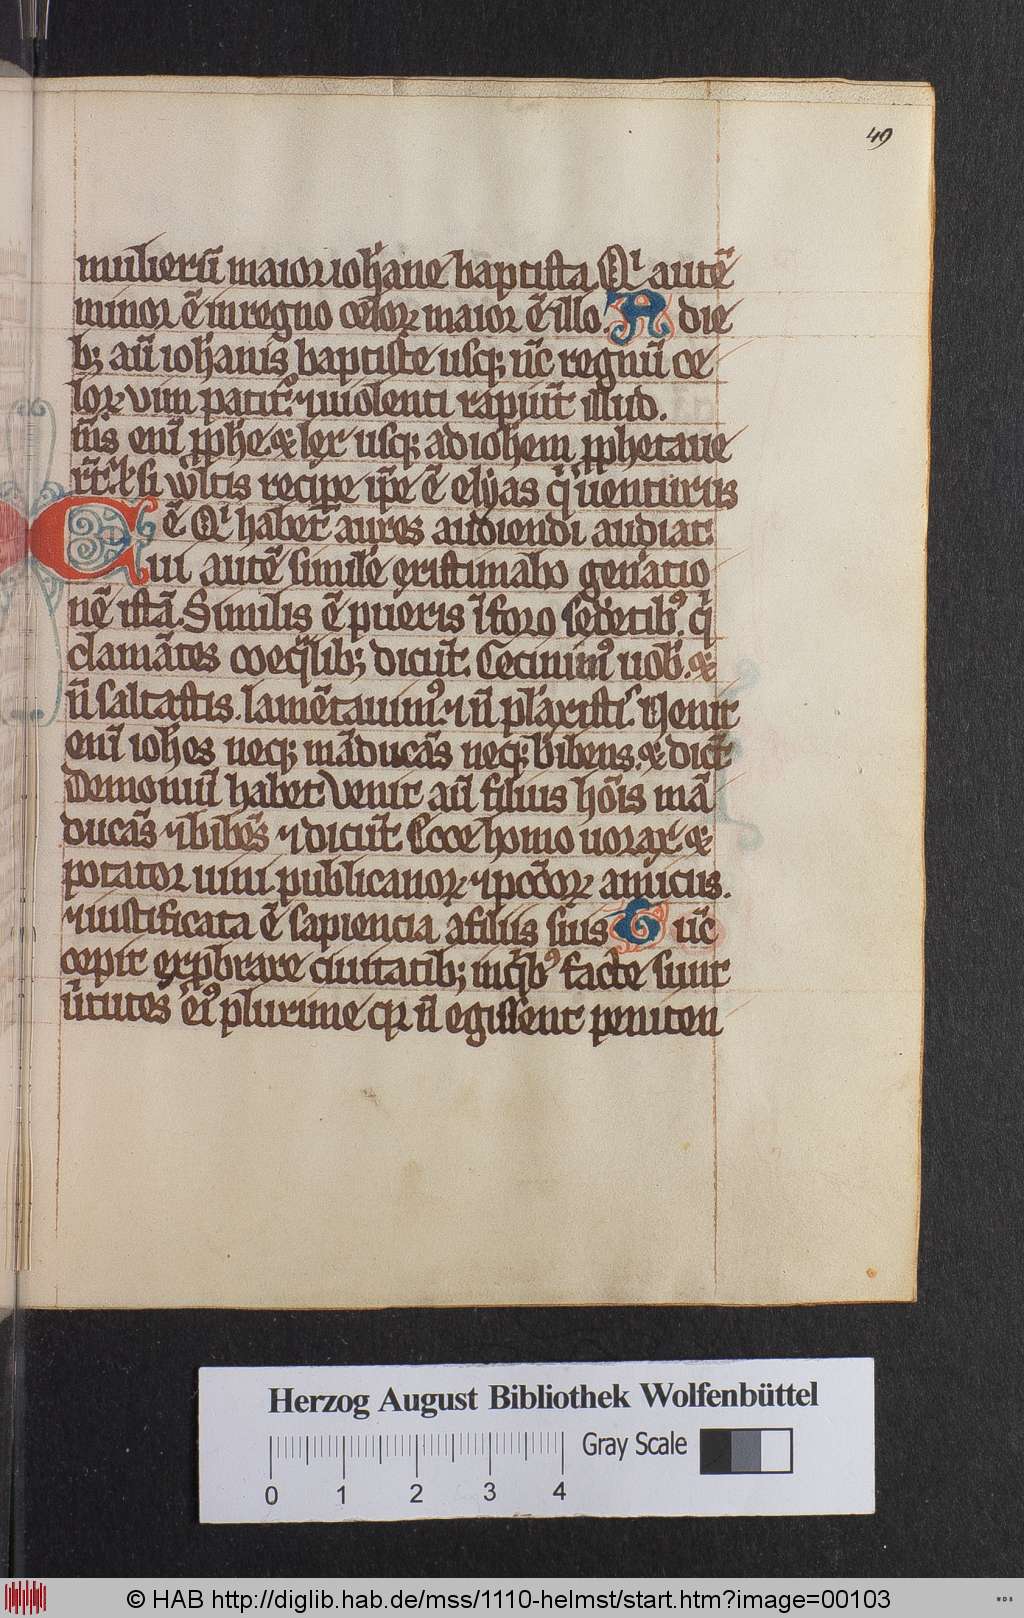 49
mulierũ maior ioh̃ane baptista Qͥ autẽ
minor ẽ in regno celoꝝ maior ẽ illo. A die
bꝫ aũ ioh̃anis baptiste usqꝫ ũc regnũ ce
loꝝ vim patit᷑. ⁊ uiolenti rapiũt illud.
m̃s enĩ ꝓph̃e ⁊ lex usqꝫ ad ioh̃em ꝓphetaue
r̃t. ⁊ si w̃ltis recipe ip̃e ẽ elyas qͥ uenturus
ẽ Qͥ habet aures audiendi audiat.
Cui autẽ simile existimabo gen̾atio
nẽ istã. Similis ẽ pueris ĩ foro sedẽtibꝰ. qͥ
clamãtes coeq̃libꝫ dicũt. Cecinimꝰ uob̾. ⁊
ñ saltastis. lamẽtauimꝰ. ⁊ ñ plãxistis Venit
enĩ ioh̃es neqꝫ mãducãs neqꝫ bibens. ⁊ dic̃t
Demoniũ habet Venit aũ filius hõis mã
ducãs ⁊ bibẽs ⁊ dicũt. Ecce homo uorax ⁊
potator uini publicanoꝝ ⁊ pccõꝝ amicus.
⁊ iustificata ẽ sapiencia a filiis suis Tũc
cepit exp̱brare ciuitatibꝫ inqͥbꝰ facte sunt
ũtutes eiꝰ plurime qꝛ ñ egissent peniten
Herzog August Bibliothek Wolfenbüttel
Gray Scale
0 1 2 3 4
© HAB http://diglib.hab.de/mss/1110-helmst/start.htm?image=00103